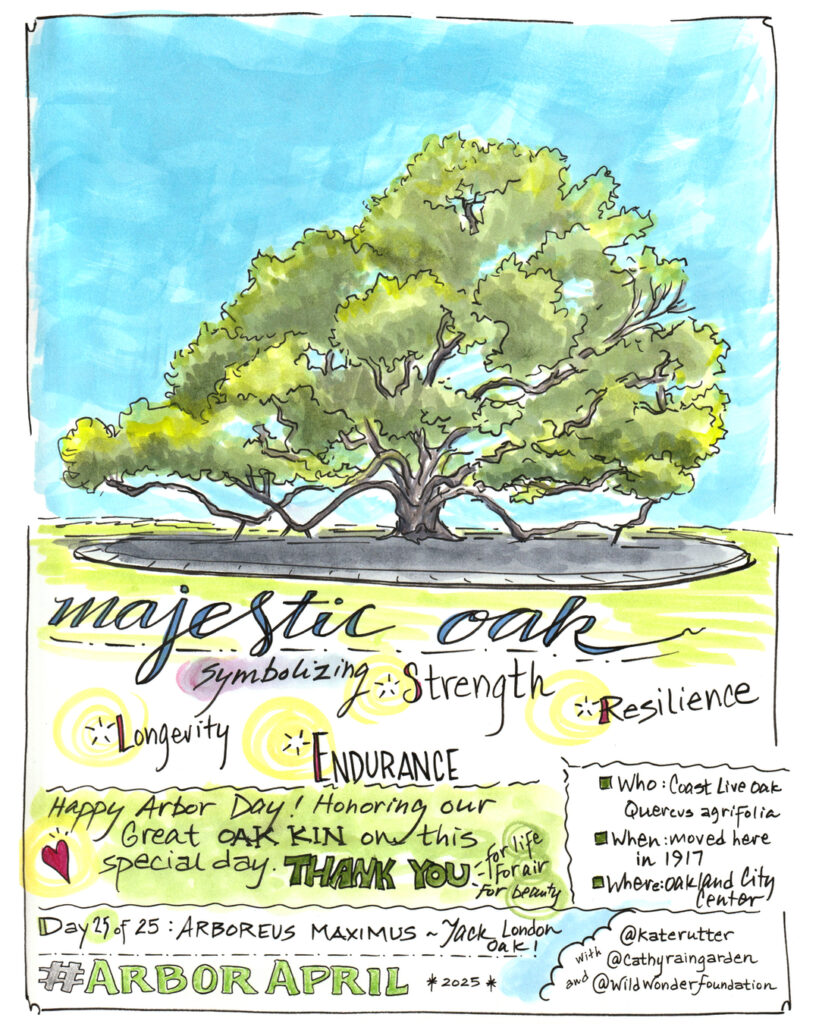 majestic oak
symbolizing
Strength
Resilience
Longerity
ENDURANCE
Happy Arbor Day! Honoring our
Great OAK KIN on this
special day. THANK YOU
for life
for air
for beauty
Who: Coast Live Oak
Quercus agrifolia
When: moved here
in 1917
Where: Oakland City
Center
Day 25 of 25: ARBOREUS MAXIMUS ~ Jack London
Oak!
#ARBOR APRIL *2025*
@katerutter
with @cathyraingarden
and @wildwonderfoundation